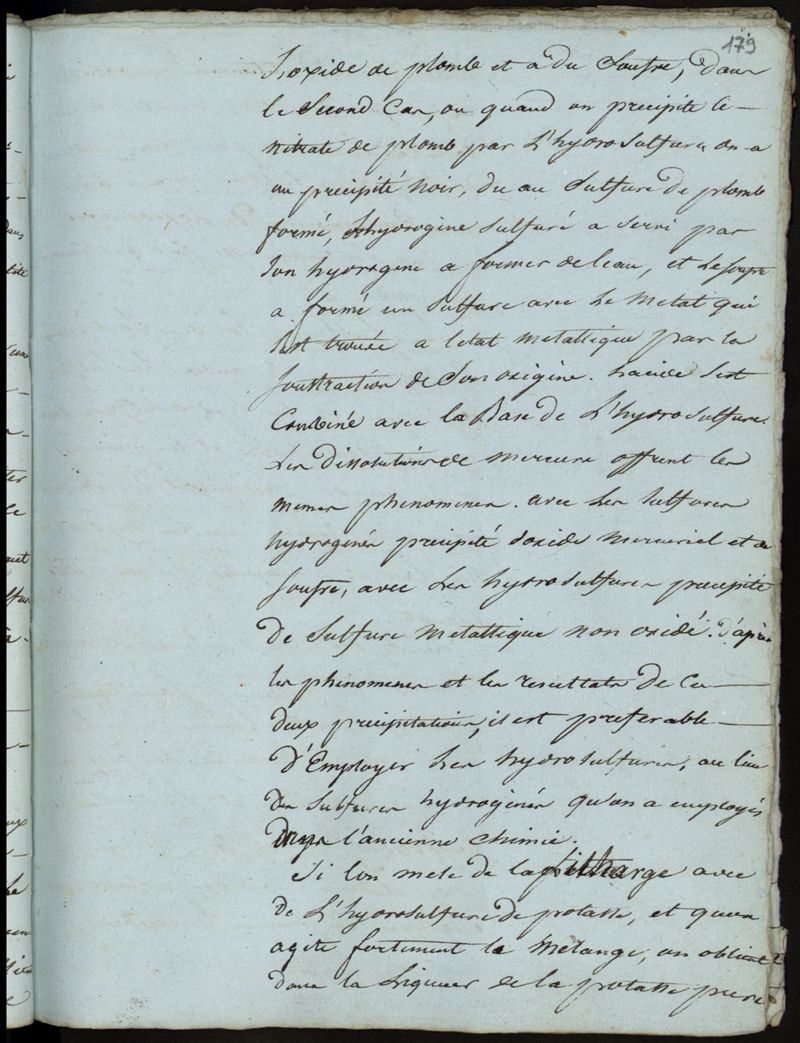 179
L'oxide de plomb et a du Soufre, dans
le Second Cas, ou quand on precipite le
nitrate de plomb par L'hydrosulfure on a
un precipité noir, du au Sulfure de plomb
formé, L'hydrogine Sulfuré a servi par
son hydrogene a former de leau, et Le soufre
a formé un Sulfure avec Le metal qui
s'est trouvée a letat metallique par la
soustraction de Son oxigine. Lacide s'est
Combiné avec la Base de L'hydrosulfure.
Les Dissolutions de mercure offrent les
memes phenomenes. avec Les sulfures
hydrogénés precipité d'oxide mercuriel et de
soufre, avec Les hydrosulfures precipité
de Sulfure metallique non oxidé. D'apres
les phénomenes et les resultats de Ces
deux precipitations, il est preferable
D'Employer Les hydrosulfures, au lieu
des Sulfures hydrogénés qu'on a employés
dans l'ancienne chimie.
Si l'on mele de la litharge avec
de L'hydrosulfure de protasse, et qu'on
agite fortement le Mélange, on obtient
dans la Liqueur de la protasse pure